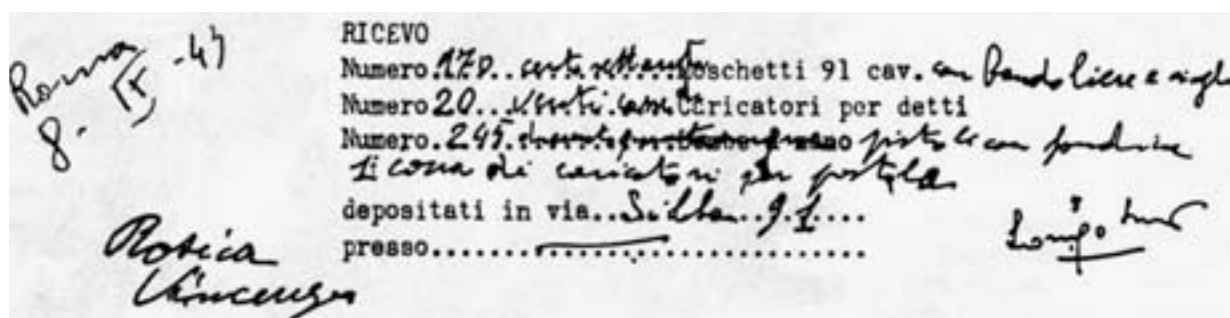 Roma
8. IX - 43
RICEVO
Numero 170.. centosettanta moschetti 91 cav. con bandoliere e
Numero 20... venti casse Caricatori per detti
Numero. 245. pistole con fondine
1 cassa di caricatori per pistola
depositati in via.. Silla.. 91....
presso..............................
Rotica
Vincenzo
Longo